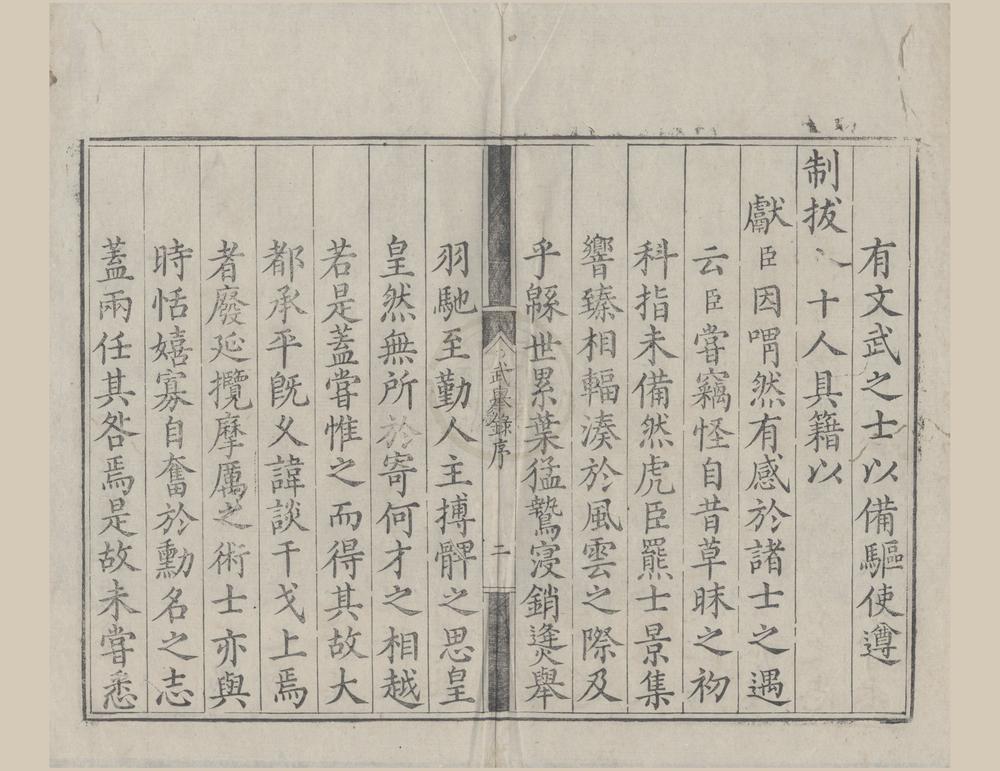 有文武之士以備驅使遵
制拔八十人具籍以
獻臣因喟然有感於諸士之遇
云臣嘗竊怪自昔草昧之初
科指未備然虎臣羆士景集
響臻相輻湊於風雲之際及
乎緜世累葉猛鷙寖銷㷭舉
武舉錄序
二
羽馳至勤人主搏髀之思皇
皇然無所於寄何才之相越
若是蓋嘗惟之而得其故大
都承平旣乆諱談干戈上焉
者廢延攬摩厲之術士亦與
時恬嬉寡自奮於勳名之志
蓋兩任其咎焉是故未嘗悉